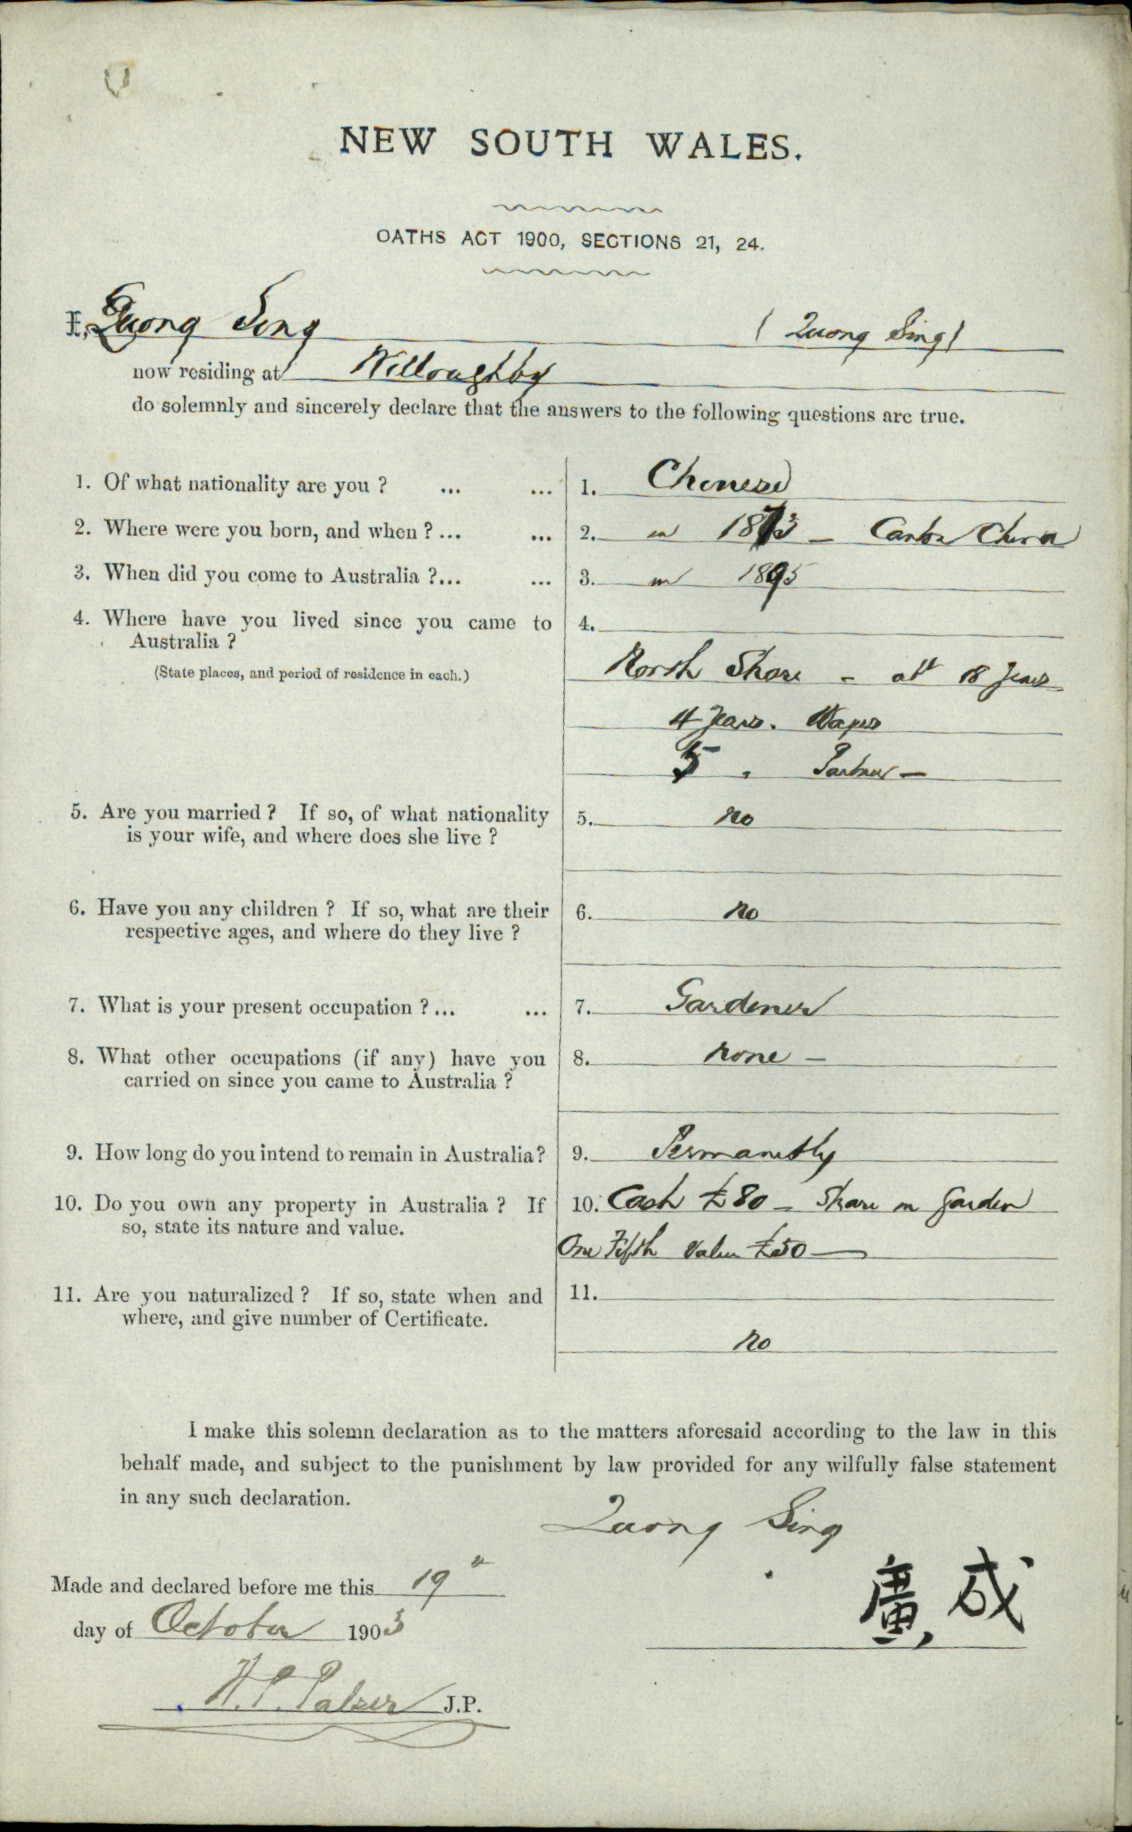 NEW SOUTH WALES.
OATHS ACT 1900, SECTIONS 21, 24.
I, Quong Sing (Quong Sing)
now residing at Willoughby
do solemnly and sincerely declare that the answers to the following questions are true.
1. Of what nationality are you ? ... ... 1. Chinese
2. Where were you born, and when ? ... ... 2. in 1873 – Canton China
3. When did you come to Australia ?... ... 3. in 1895
4. Where have you lived since you came to 4.
Australia ?
(State places, and period of residence in each.) North Shore – 18 years
4 years. Wages
5 " Partner –
5. Are you married ? If so, of what nationality 5. no
is your wife, and where does she live ?
6. Have you any children ? If so, what are their 6. no
respective ages, and where do they live ?
7. What is your present occupation ? ... ... 7. Gardener
8. What other occupations (if any) have you 8. none –
carried on since you came to Australia ?
9. How long do you intend to remain in Australia? 9. Permanetly
10. Do you own any property in Australia ? If 10. Cash £80 – Share in Garden
so, state its nature and value. One Fifth Value £50 —
11. Are you naturalized ? If so, state when and 11.
where, and give number of Certificate.
no
I make this solemn declaration as to the matters aforesaid according to the law in this
behalf made, and subject to the punishment by law provided for any wilfully false statement
in any such declaration.
Quong Sing
Made and declared before me this 19th
廣成
day of October 1903
H.P. Palser J.P.